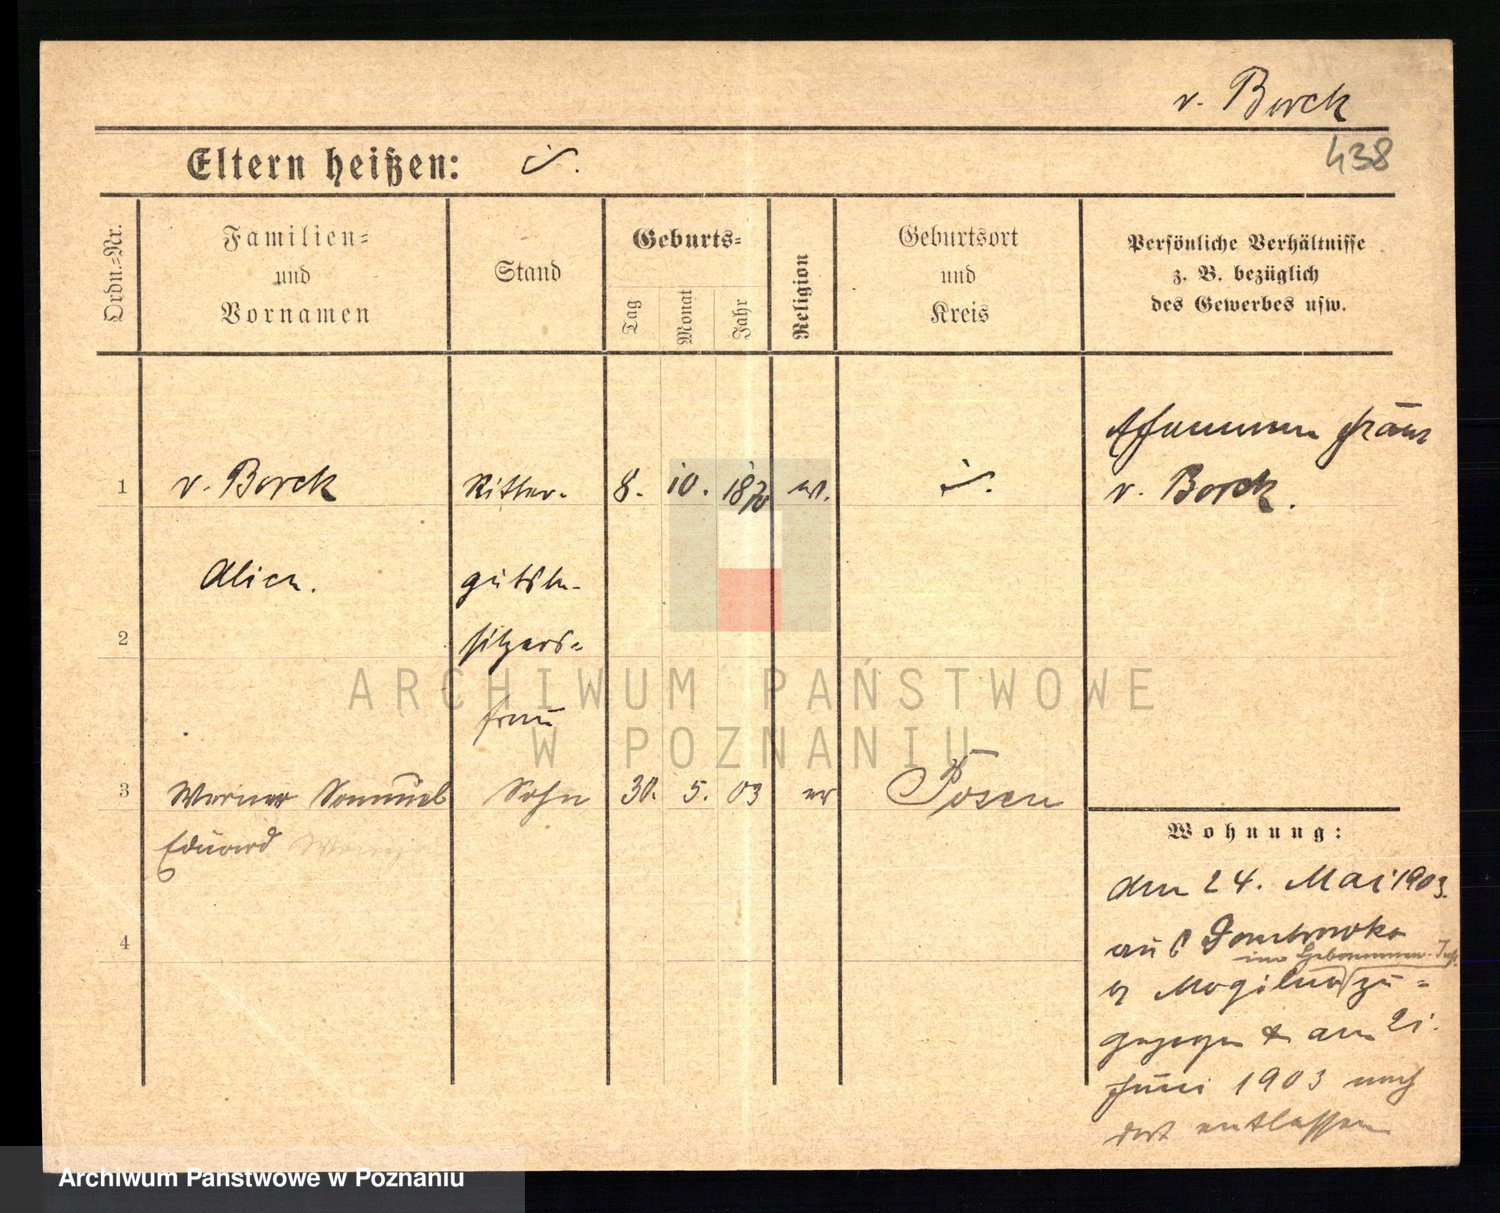 v. Borck
438
Eltern heißen:
Ordn.-Nr.
Familien-
und
Vornamen
Stand
Geburts-
Tag
Monat
Jahr
Religion
Geburtsort
und
Kreis
Persönliche Verhältnisse
z. B. bezüglich
des Gewerbes usw.
Ehemann
v. Borck.
1
v. Borck
Ritter-
8. 10. 1870
ev.
Alice.
gutsbe-
2
sitzers-
frau
3
Werner Samuel
Sohn
30. 5. 03
ev
Posen
Eduard
4
Wohnung:
den 24. Mai 1903.
aus Dombrowka
im Hebammen-
Mogilno zu-
gezogen & am 21.
Juni 1903 nach
dort entlassen
ARCHIWUM PAŃSTWOWE
W POZNANIU
Archiwum Państwowe w Poznaniu